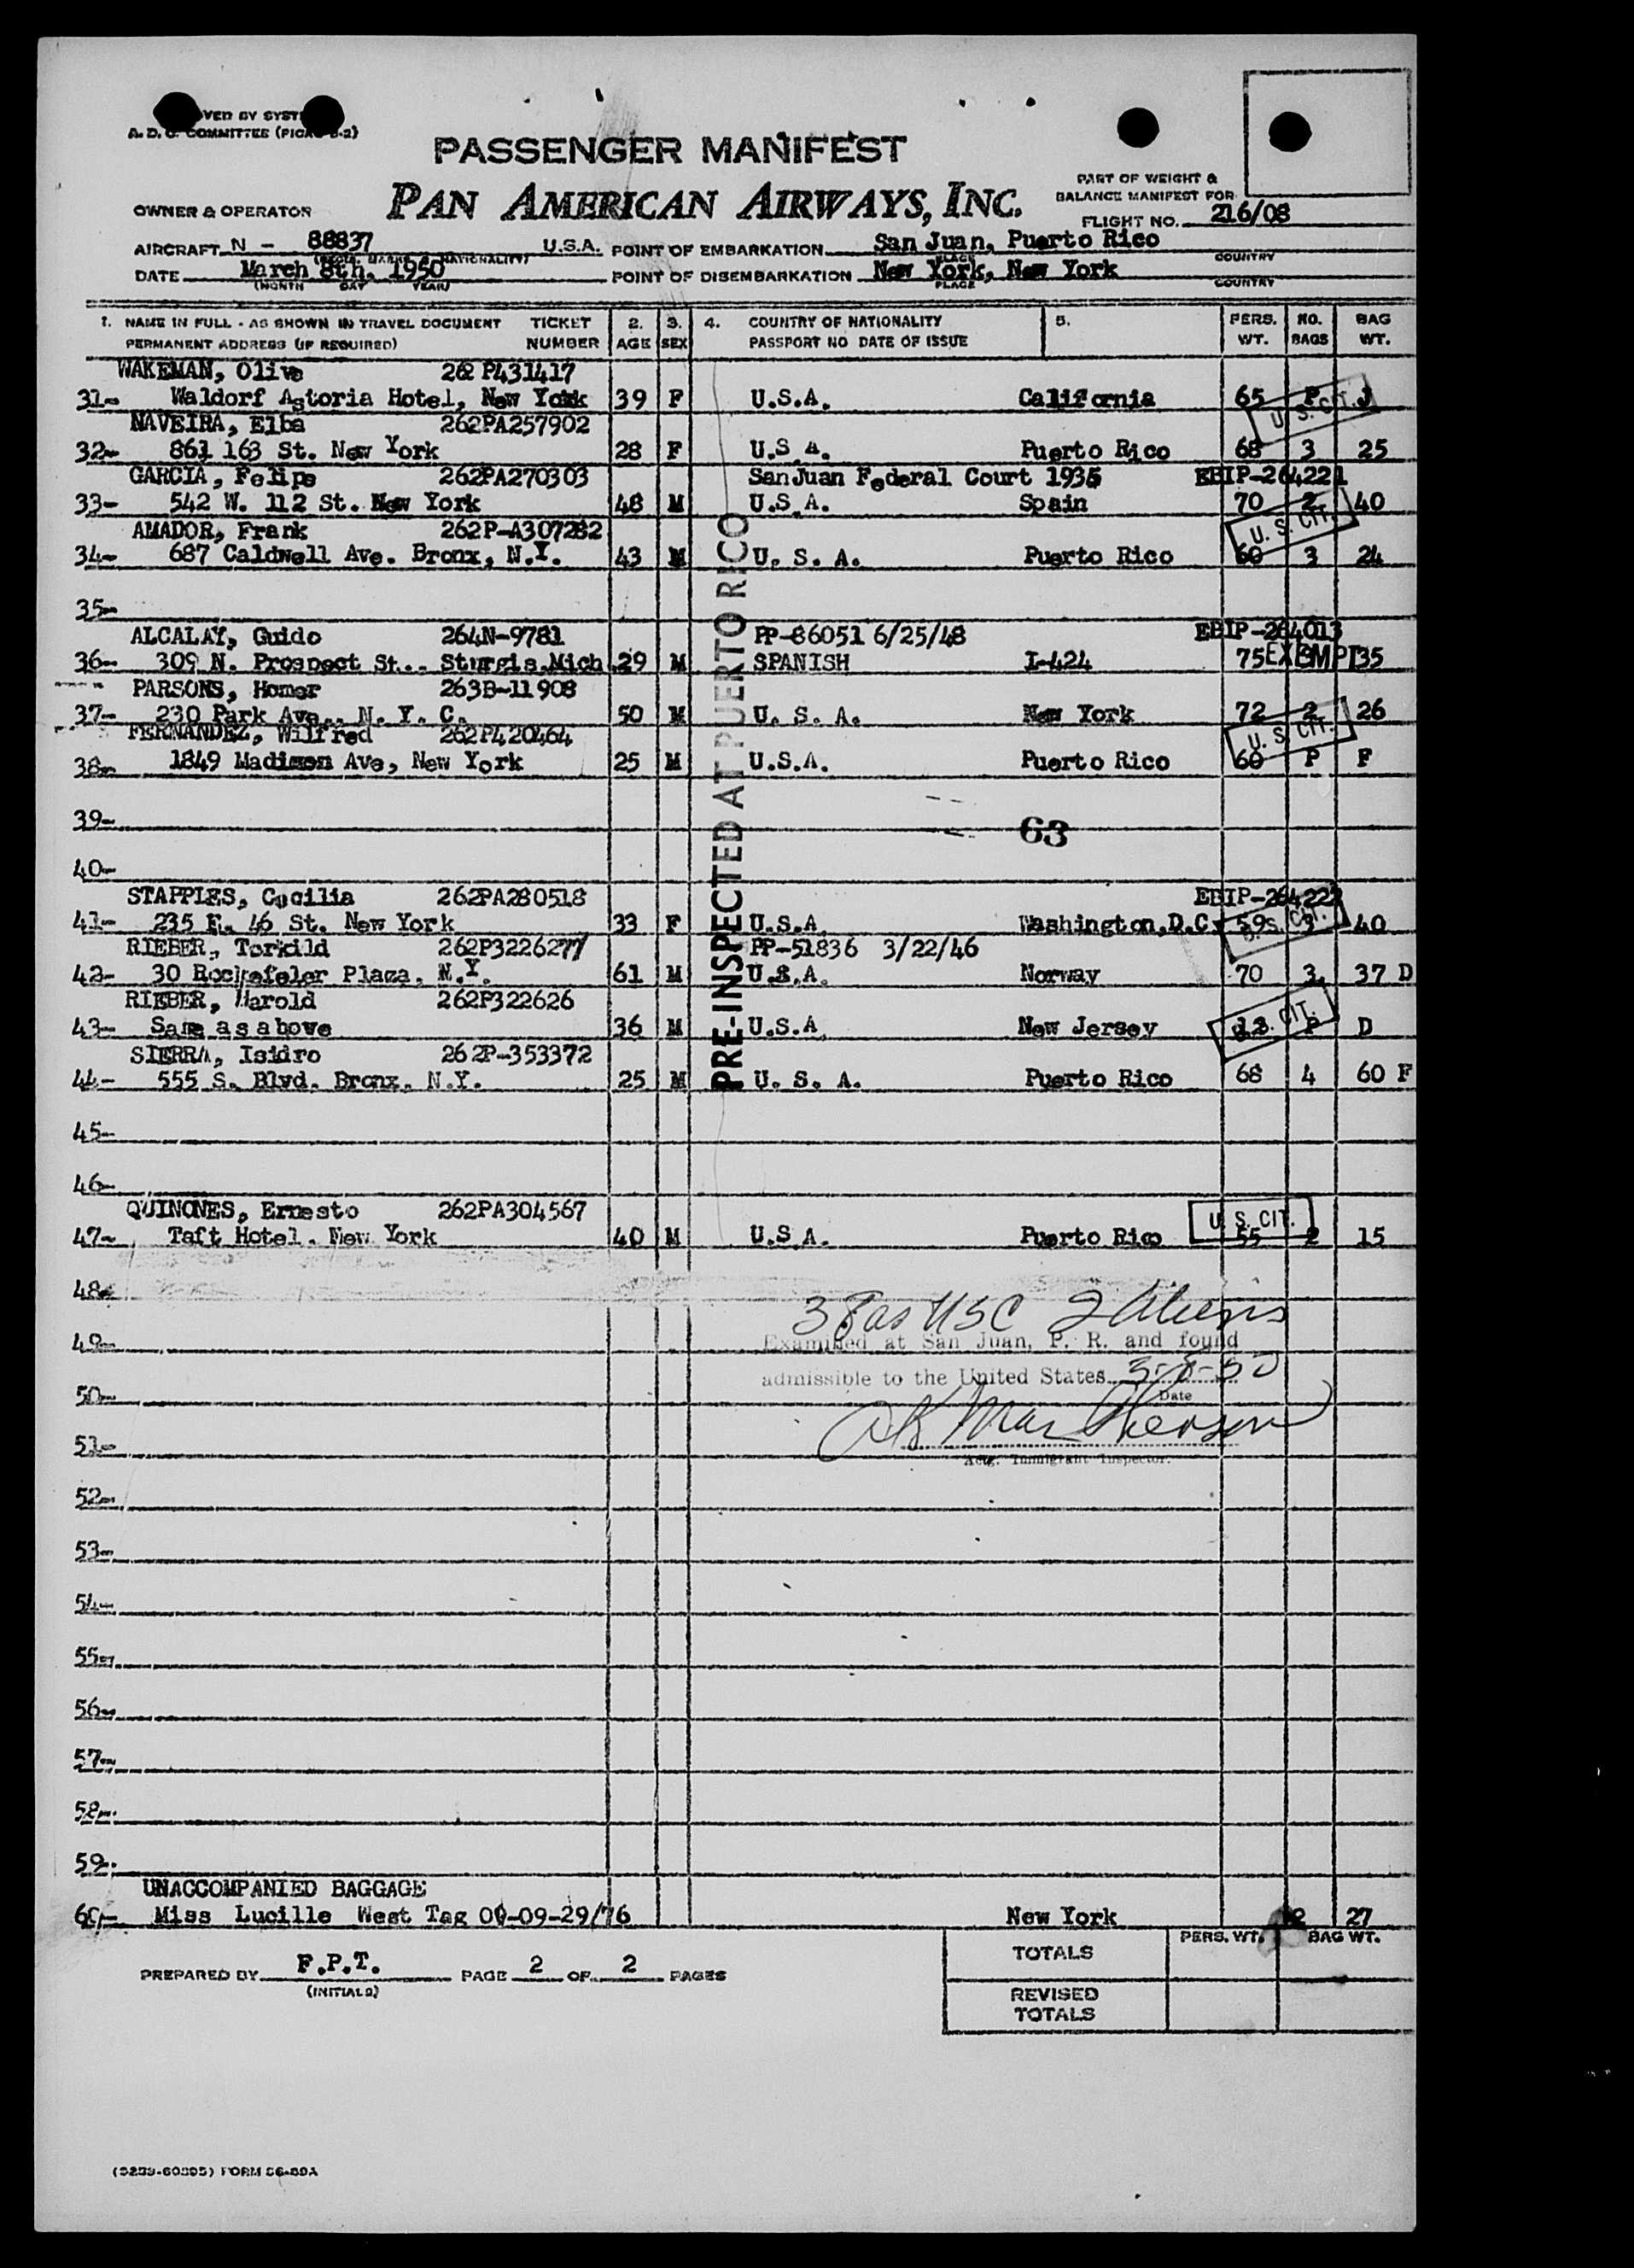 VED BY SYST
A. D. C. COMMITTEE (PICAO -2)
PASSENGER MANIFEST
PAN AMERICAN AIRWAYS, INC.
PART OF WEIGHT &
BALANCE MANIFEST FOR
FLIGHT NO. 216/08
OWNER & OPERATOR
AIRCRAFT N - 88837 U.S.A. POINT OF EMBARKATION San Juan, Puerto Rico
(REGIS. MARKS & NATIONALITY) PLACE COUNTRY
DATE March 8th, 1950 POINT OF DISEMBARKATION New York, New York
(MONTH DAY YEAR) PLACE COUNTRY
1. NAME IN FULL - AS SHOWN IN TRAVEL DOCUMENT TICKET 2. 3. 4. COUNTRY OF NATIONALITY 5. PERS. NO. BAG
PERMANENT ADDRESS (IF REQUIRED) NUMBER AGE SEX PASSPORT NO DATE OF ISSUE WT. BAGS WT.
WAKEMAN, Olive 262 P431417
31- Waldorf Astoria Hotel, New York 39 F U.S.A. California 65 P J
U. S. CIT.
NAVEIRA, Elba 262PA257902
32- 861 163 St. New York 28 F U.S.A. Puerto Rico 68 3 25
GARCIA, Felipe 262PA270303 SanJuan Federal Court 1935 EBIP-264221
33- 542 W. 112 St. New York 48 M U.S.A. Spain 70 2 40
U. S. CIT.
AMADOR, Frank 262P-A307282
34- 687 Caldwell Ave. Bronx, N.Y. 43 M U. S. A. Puerto Rico 60 3 24
35-
ALCALAY, Guido 264N-9781 PP-86051 6/25/48 EBIP-264013
36- 309 N. Prospect St., Sturgis.Mich. 29 M SPANISH I-424 75 EXEMPT 35
PARSONS, Homer 263B-11908
37- 230 Park Ave., N. Y. C. 50 M U. S. A. New York 72 2 26
U. S. CIT.
FERNANDEZ, Wilfred 262P420464
38- 1849 Madison Ave, New York 25 M U.S.A. Puerto Rico 60 P F
39-
63
40-
STAPPLES, Cecilia 262PA280518 EBIP-264222
41- 235 E. 46 St. New York 33 F U.S.A. Washington,D.C. 59 3 40
U. S. CIT.
RIEBER, Torkild 262P3226277/ PP-51836 3/22/46
42- 30 Rockefeler Plaza, N.Y. 61 M U.S.A. Norway 70 3 37 D
RIEBER, Harold 262P322626
43- Same as above 36 M U.S.A. New Jersey P D
U. S. CIT.
SIERRA, Isidro 262P-353372
44- 555 S. Blvd. Bronx, N.Y. 25 M U. S. A. Puerto Rico 68 4 60 F
PRE-INSPECTED AT PUERTO RICO
45-
46-
QUINONES, Ernesto 262PA304567
47- Taft Hotel. New York 40 M U.S.A. Puerto Rico 55 2 15
U. S. CIT.
48-
USC 2 Aliens
49- Examined at San Juan, P. R. and found
50- admissible to the United States 3-8-50
Date
51-
Actg. Immigrant Inspector.
52-
53-
54-
55-
56-
57-
58-
59-
UNACCOMPANIED BAGGAGE
60- Miss Lucille West Tag 00-09-29/76 New York 2 27
PERS. WT. BAG WT.
TOTALS
PREPARED BY F.P.T. PAGE 2 OF 2 PAGES
(INITIALS)
REVISED
TOTALS
FORM